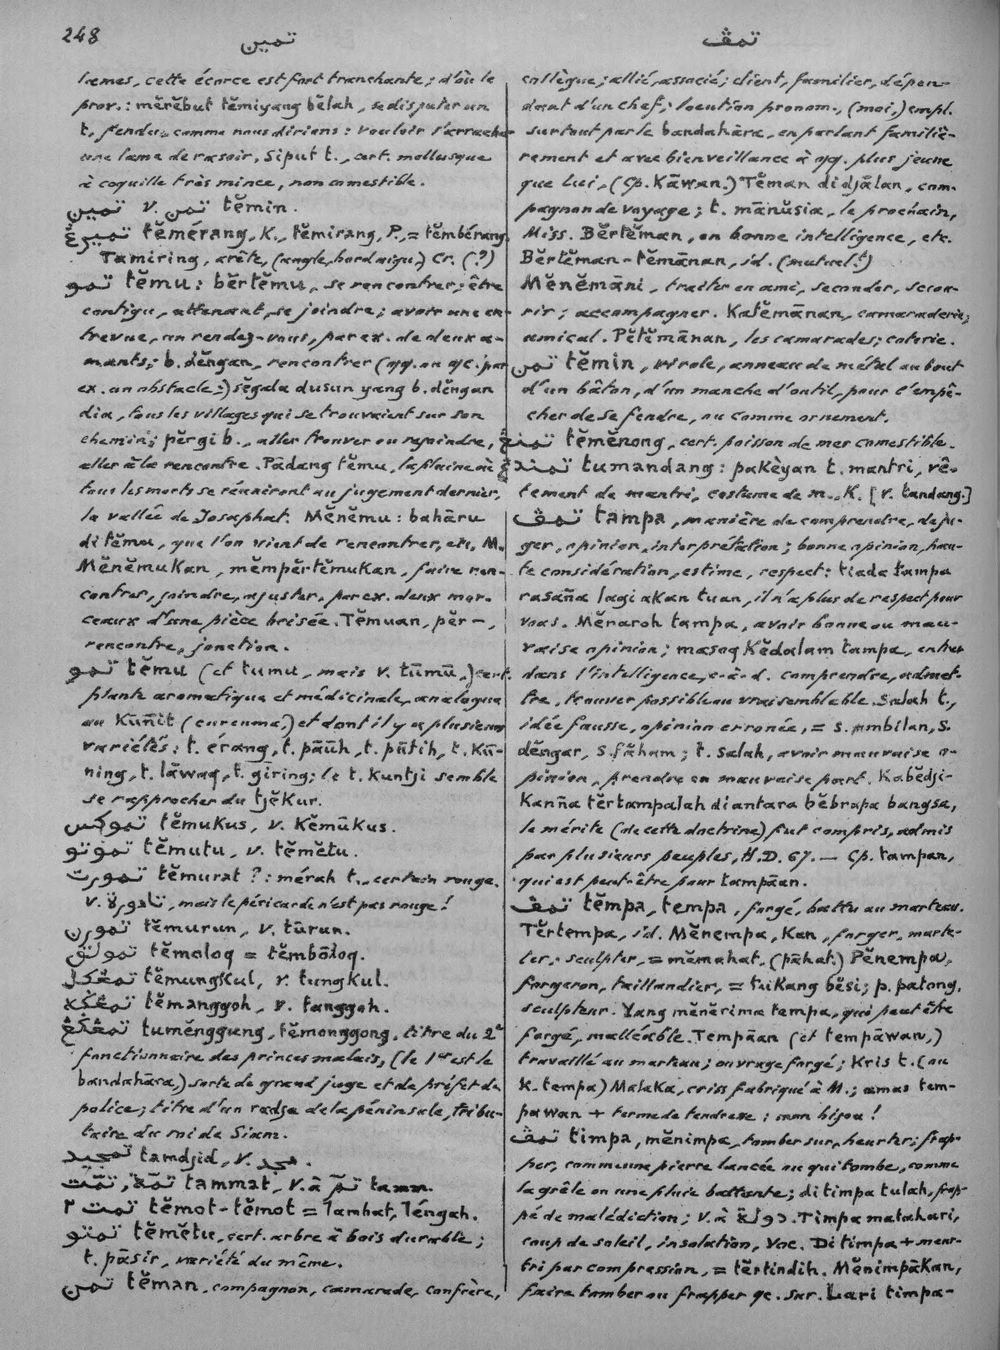 248
تمين
تمڤ
lames, cette écorce est fort tranchante; d'où le
prov.: mĕrĕbut tĕmiyang bĕlah, se disputer un
t, fendu, comme nous dirions: vouloir s'arracher
une lame de rasoir, Siput t., cert. mollusque
à coquille très mince, non comestible.
تمين v. تمن tĕmin.
tĕmérang, K., tĕmirang, P., = tĕmbérang.
Tamiring, arête, (angle, bord aigu,) Cr. (?)
تمو tĕmu: bĕrtĕmu, se rencontrer; être
contigu, attenant, se joindre; avoir une en-
trevue, un rendez-vous, par ex. de deux a-
mants; b. dĕngan, rencontrer (qq. ou qc. par
ex. un obstacle:) sĕgala dusun yang b. dĕngan
dia, tous les villages qui se trouvaient sur son
chemin; pĕrgi b., aller trouver ou rejoindre,
aller à la rencontre. Pādang tĕmu, la plaine où
tous les morts se réuniront au jugement dernier,
la vallée de Josaphat. Mĕnĕmu: bahāru
di tĕmu, que l'on vient de rencontrer, etc, M.
Mĕnĕmukan, mĕmpĕrtĕmukan, faire ren-
contrer, joindre, ajuster, par ex. deux mor-
ceaux d'une pièce brisée. Tĕmuan, pĕr-,
rencontre, jonction.
تمو tĕmu (et tumu, mais v. tūmū,) cert.
plante aromatique et médicinale, analogue
au Kūñit (curcuma,) et dont il y a plusieurs
variétés: t. érang, t. pāūh, t. pūtih, t. Kū-
ning, t. lāwaq, t. gīring; le t. Kuntji semble
se rapprocher du tjĕkur.
تموكس tĕmukus, v. Kĕmūkus.
تموتو tĕmutu, v. tĕmĕtu.
تمورت tĕmurat ?: mérah t., certain rouge.
v. , mais le péricarde n'est pas rouge!
تمورن tĕmurun, v. tūrun.
تمولق tĕmoloq = tĕmbōloq.
تمڠكل tĕmungkul, v. tungkul.
تمڠگه tĕmanggoh, v. tanggoh.
تمڠگڠ tumĕnggung, tĕmonggong, titre du 2e
fonctionnaire des princes malais, (le 1er est le
bandahāra,) sorte de grand juge et de préfet de
police; titre d'un radja de la péninsule, tribu-
taire du roi de Siam.
تمجيد tamdjid, v. مجد.
تمت, تمة tammat, v. à تم tamm.
تمت ٢ tĕmot-tĕmot = Tambat, Téngah.
تمتو tĕmĕtu, cert. arbre à bois durable;
t. pāsir, variété du même.
تمن tĕman, compagnon, camarade, confrère,
collègue; allié, associé; client, familier, dépen-
dant d'un chef; locution pronom., (moi,) empl.
surtout par le bandahāra, en parlant familiè-
rement et avec bienveillance à qq. plus jeune
que lui, (Cp. Kāwan.) Tĕman di djālan, com-
pagnon de voyage; t. mānūsia, le prochain,
Miss. Bĕrtĕman, en bonne intelligence, etc.
Bĕrtĕman-tĕmānan, id. (mutuelt)
Mĕnĕmāni, traiter en ami, seconder, secou-
rir; accompagner. Katĕmānan, camaraderie;
amical. Pĕtĕmānan, les camarades; coterie.
تمن tĕmin, virole, anneau de métal au bout
d'un bâton, d'un manche d'outil, pour l'empê-
cher de se fendre, ou comme ornement.
تمنڠ tĕmĕnong, cert. poisson de mer comestible.
تمندڠ tumandang: pakèyan t. mantri, vê-
tement de mantri, costume de m., K. [v. tandang.]
تمڤ tampa, manière de comprendre, de ju-
ger, opinion, interprétation; bonne opinion, hau-
te considération, estime, respect: tiada tampa
rasaña lagi akan tuan, il n'a plus de respect pour
vous. Mĕnaroh tampa, avoir bonne ou mau-
vaise opinion; masoq Kĕdalam tampa, entrer
dans l'intelligence, c-à-d. comprendre, admet-
tre, trouver possible ou vraisemblable. Salah t.,
idée fausse, opinion erronée, = s. ambilan, s.
dĕngar, s. fāham; t. salah, avoir mauvaise o-
pinion, prendre en mauvaise part. Kabĕdji-
kanña tĕrtampalah diantara bĕbrapa bangsa,
le mérite (de cette doctrine) fut compris, admis
par plusieurs peuples, H.D. 67. — Cp. tampan,
qui est peut-être pour tampāan.
تمڤ tĕmpa, tempa, forgé, battu au marteau.
Tĕrtempa, id. Mĕnempa, kan, forger, marte-
ler; sculpter, = mĕmahat, (pāhat.) Pĕnempa,
forgeron, taillandier, = tukang bĕsi; p. patong,
sculpteur. Yang mĕnĕrima tempa, qui peut être
forgé, malléable. Tempāan (et tempāwan,)
travaillé au marteau; ouvrage forgé; Kris t. (ou
K. tempa) Malaka, criss fabriqué à M.; amas tem-
pawan + terme de tendresse: mon bijou!
تمڤ timpa, mĕnimpa, tomber sur, heurter; frap-
per, comme une pierre lancée ou qui tombe, comme
la grêle ou une pluie battante; di timpa tulah, frap-
pé de malédiction; v. à دولة. Timpa matahari,
coup de soleil, insolation, Voc. Di timpa + meur-
tri par compression, = tĕrtindih. Mĕnimpākan,
faire tomber ou frapper qc. sur. Lari timpa-